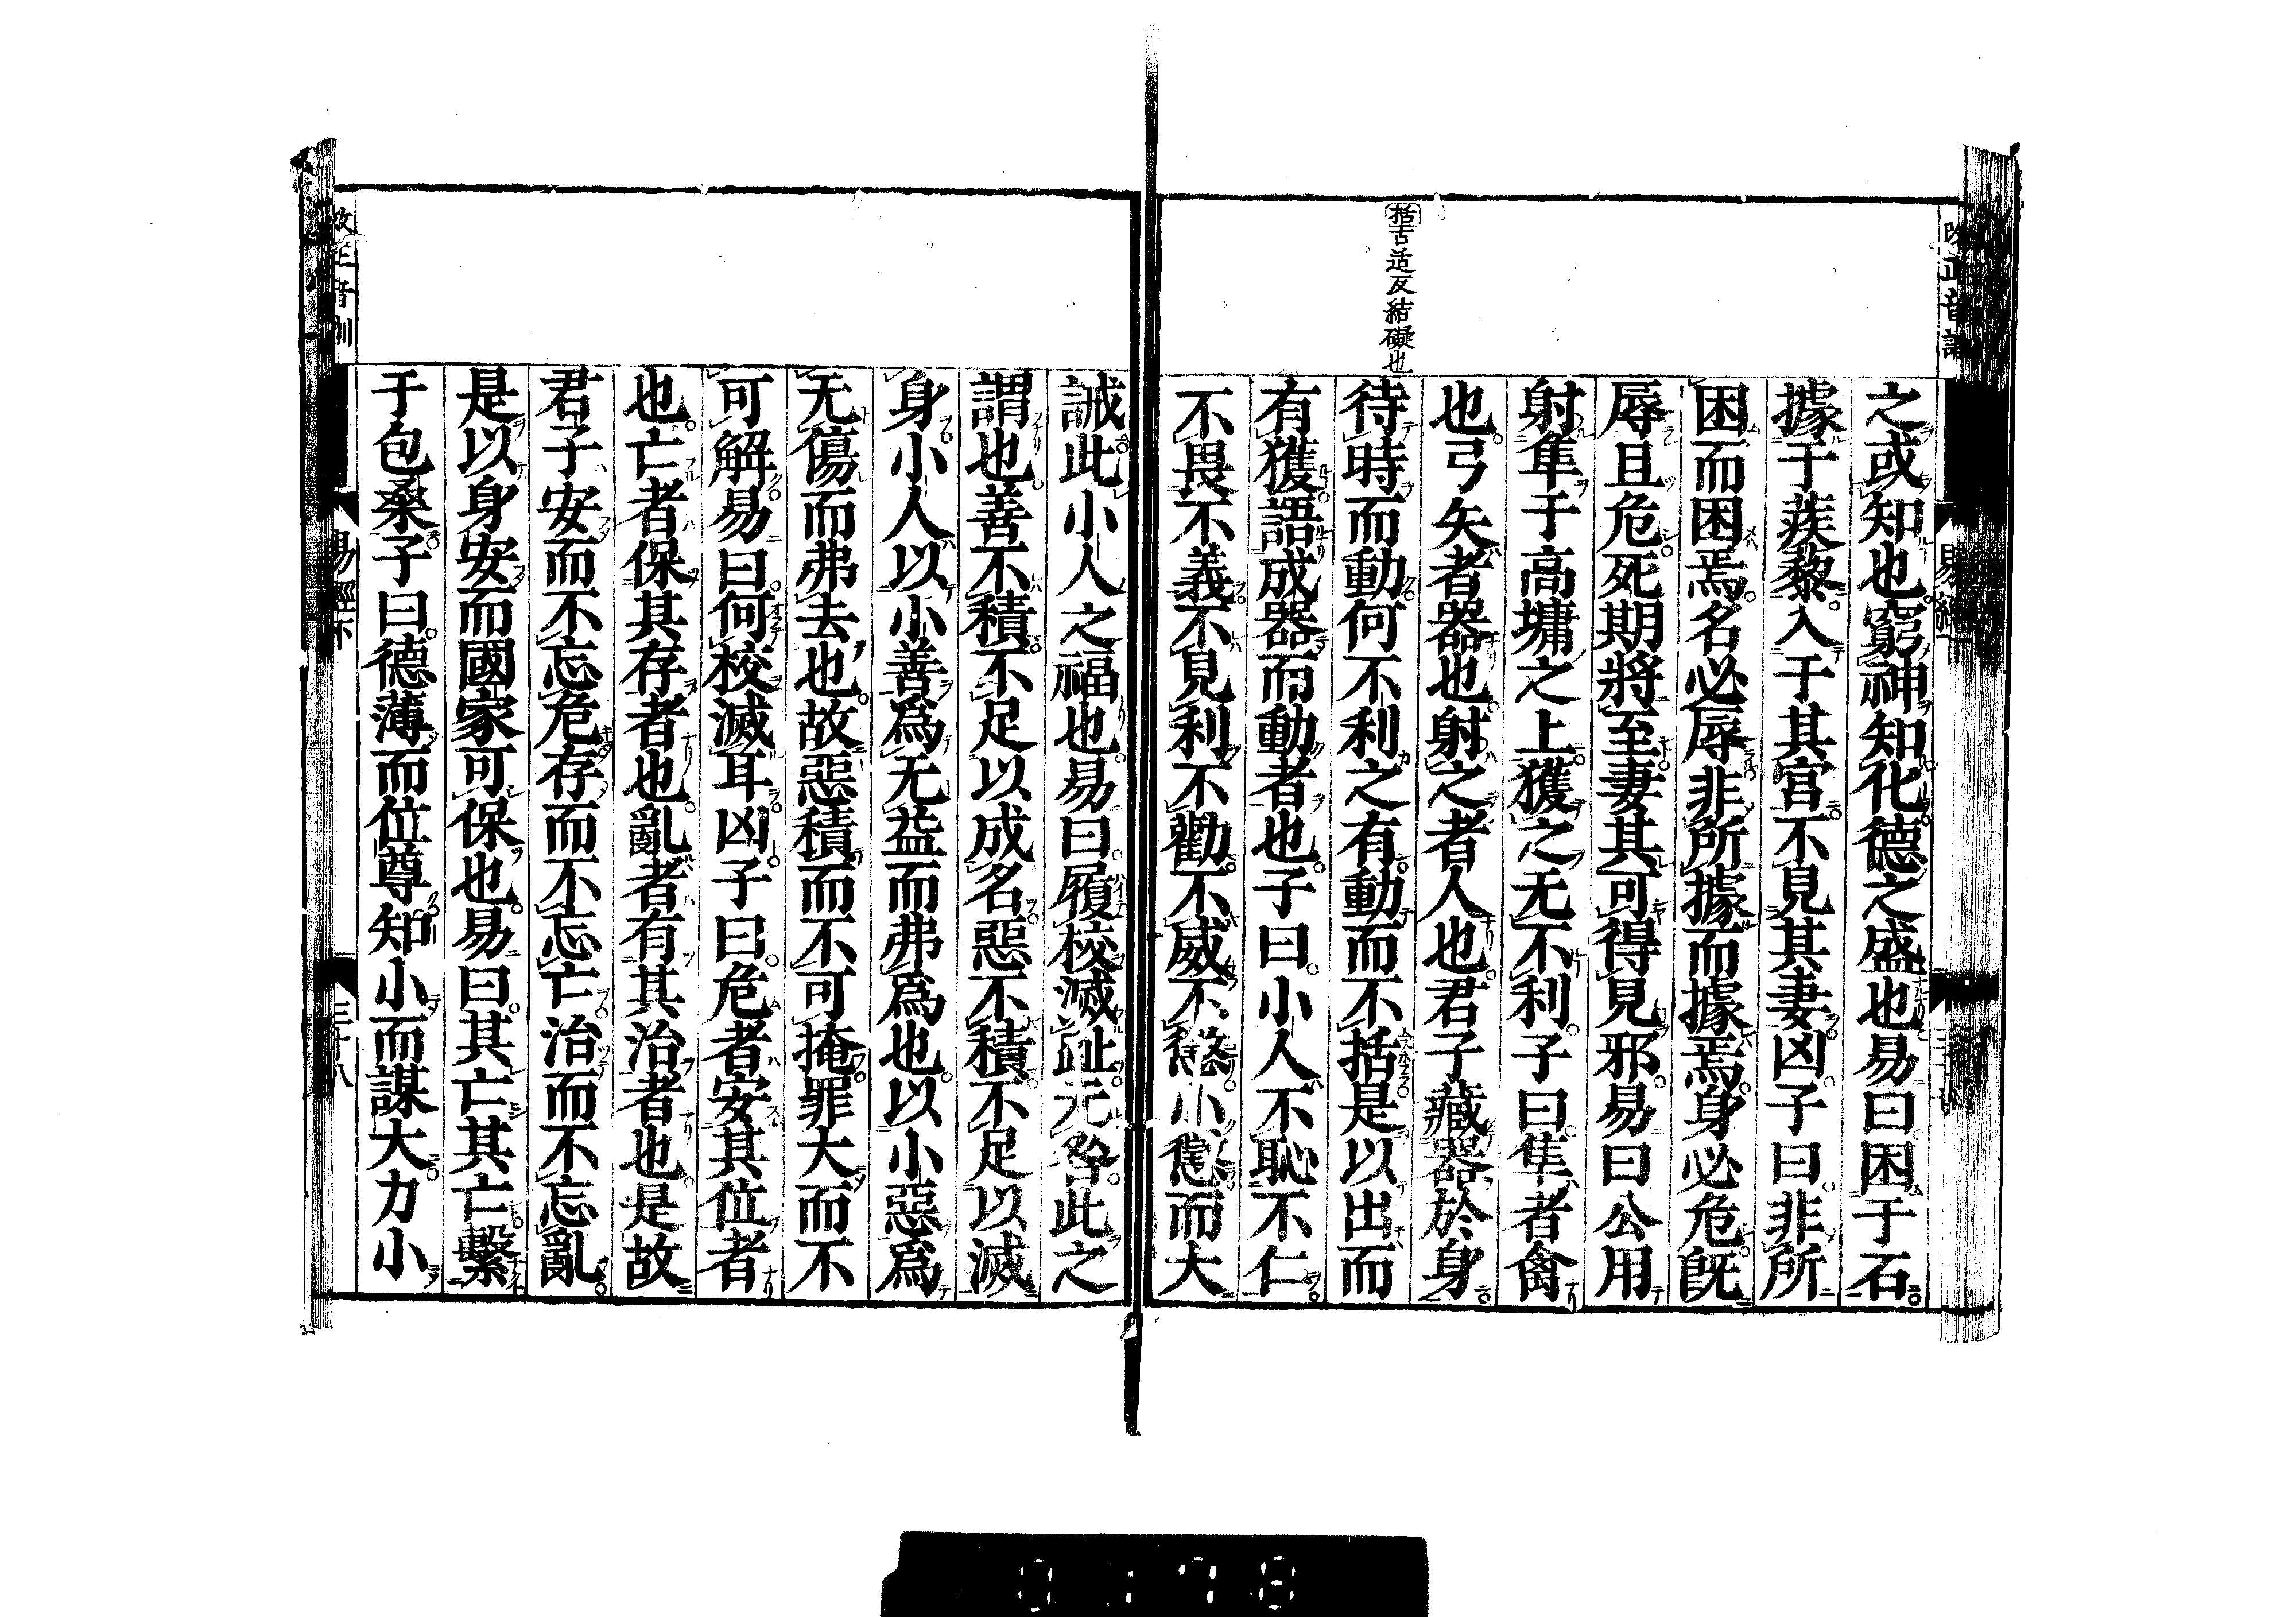 括古活反結礙也
之或知也窮神知化德之盛也易曰困于石
據于蒺藜入于其宮不見其妻凶子曰非所
困而困焉名必辱非所據而據焉身必危旣
辱且危死期將至妻其可得見邪易曰公用
射隼于高墉之上獲之无不利子曰隼者禽
也弓矢者器也射之者人也君子藏器於身
待時而動何不利之有動而不括是以出而
有獲語成器而動者也子曰小人不恥不仁
不畏不義不見利不勸不威不懲小懲而大
誡此小人之福也易曰履校滅趾无咎此之
謂也善不積不足以成名惡不積不足以滅
身小人以小善爲无益而弗爲也以小惡爲
无傷而弗去也故惡積而不可掩罪大而不
可解易曰何校滅耳凶子曰危者安其位者
也亡者保其存者也亂者有其治者也是故
君子安而不忘危存而不忘亡治而不忘亂
是以身安而國家可保也易曰其亡其亡繫
于包桑子曰德薄而位尊知小而謀大力小
改正音訓
易經下
三十八